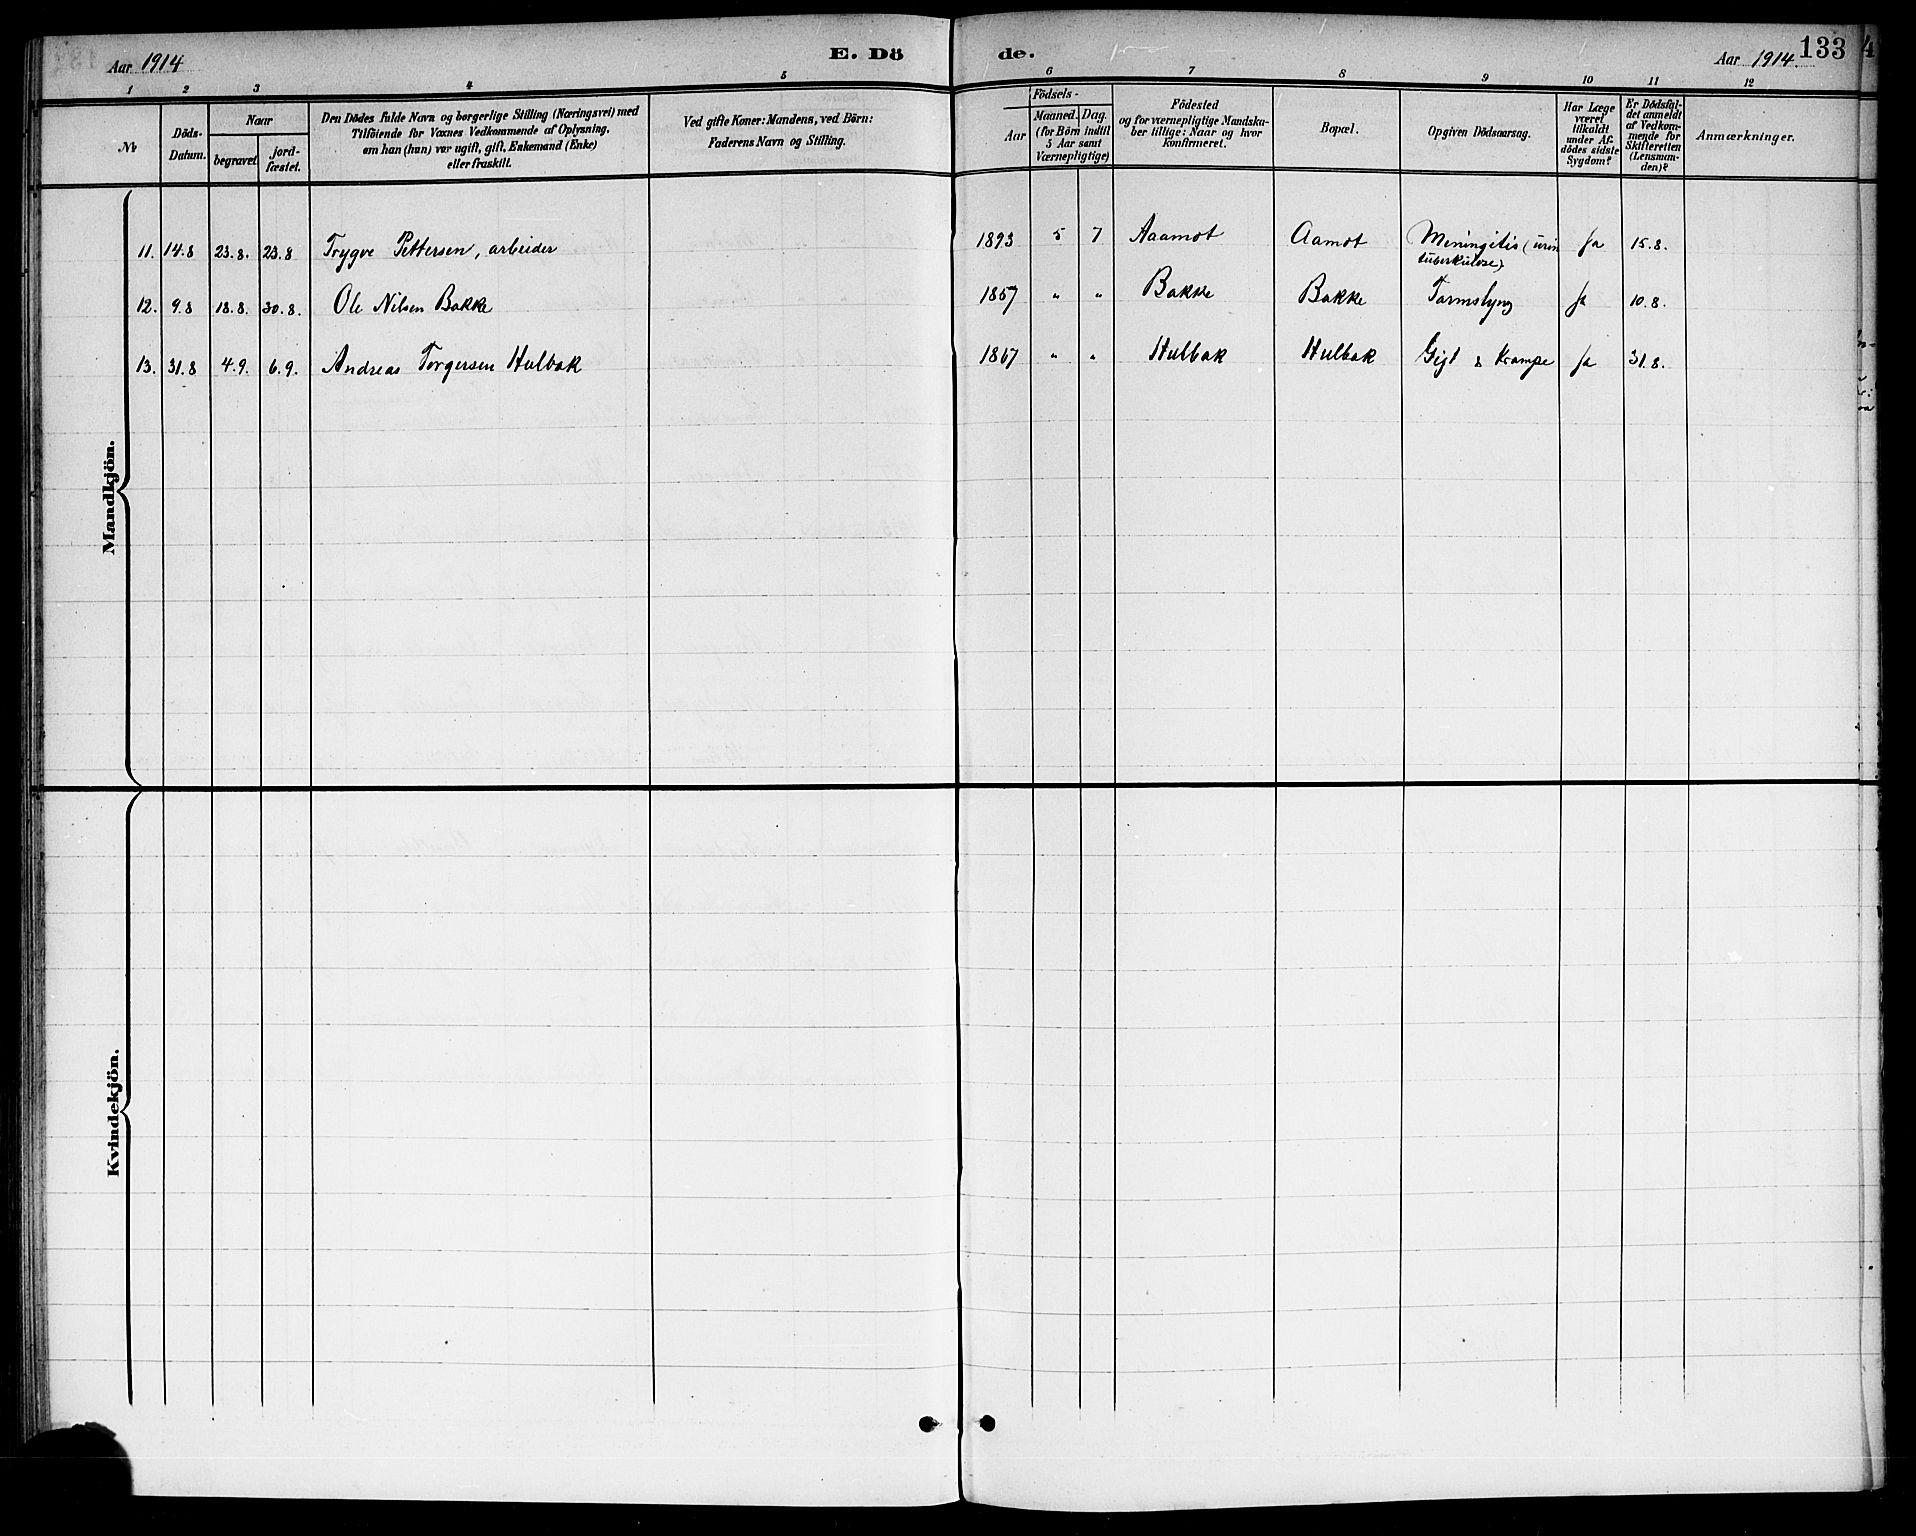 Aar 1914
E. Dö
de.
Aar 1914.
133
4
1 2 3 4 5 6 7 8 9 10 11 12
No
Döds-
Datum.
Naar
begravet
jord-
fæstet.
Den Dödes fulde Navn og borgerlige Stilling (Næringsvei) med
Tilföiende for Voxnes Vedkommende af Oplysning,
om han (hun) var ugift, gift, Enkemand (Enke)
eller fraskilt.
Ved gifte Koner: Mandens, ved Börn:
Faderens Navn og Stilling.
Födsels-
Aar
Maaned.
Dag.
(for Börn indtil
5 Aar samt
Værnepligtige)
Födested
og for værnepligtige Mandska-
ber tillige: Naar og hvor
konfirmeret.
Bopæl.
Opgiven Dödsaarsag.
Har Læge
været
tilkaldt
under Af-
dödes sidste
Sygdom?
Er Dödsfal-
det anmeldt
af Vedkom-
mende for
Skifteretten
(Lensman-
den)?
Anmærkninger.
Mandkjön.
11. 14.8 23.8. 23.8 Trygve Pettersen, arbeider 1893 5 7 Aaamot Aamot Meningitis (urin Ja 15.8.
tuberkulose)
12. 9.8 18.8. 30.8. Ole Nilsen Bakke 1857 " " Bakke Bakke Tarmslyng Ja 10.8.
13. 31.8 4.9. 6.9. Andreas Torgersen Hulbak 1867 " " Hulbak Hulbak Gigt & Krampe Ja 31.8.
Kvindekjön.